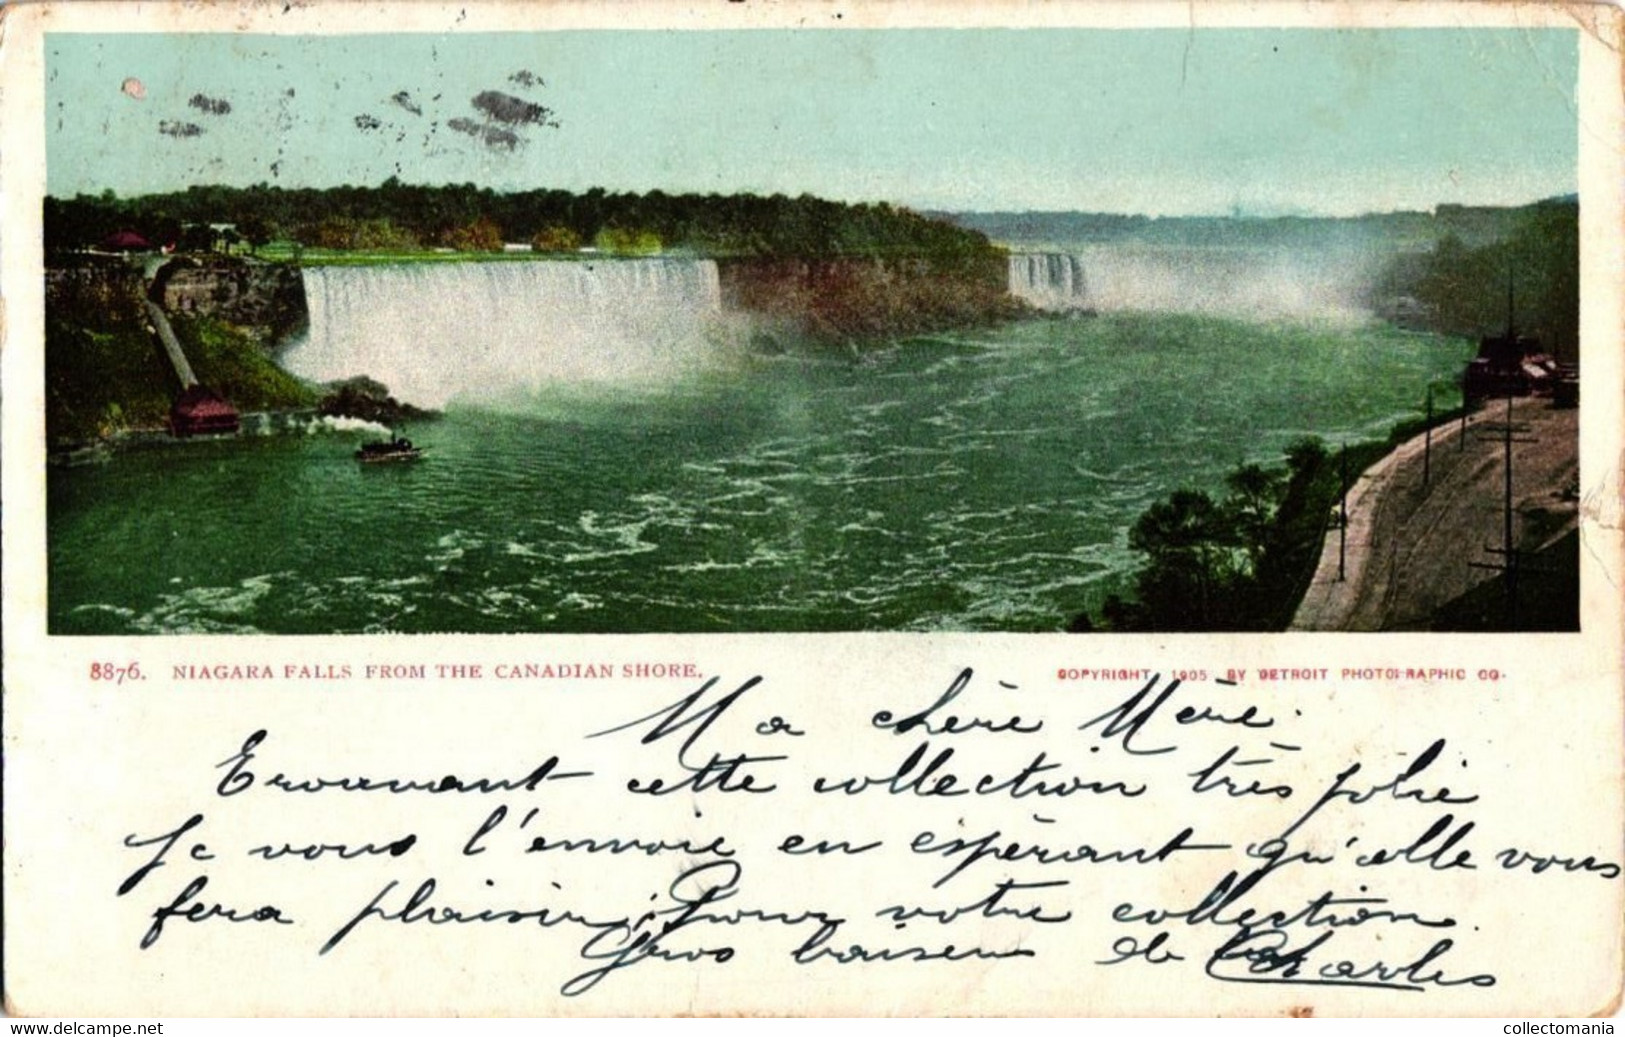 8876. NIAGARA FALLS FROM THE CANADIAN SHORE.
COPYRIGHT, 1905 BY DETROIT PHOTOGRAPHIC CO.
Ma chère Mère.
Trouvant cette collection très jolie
Je vous l'envoie en espérant qu'elle vous
fera plaisir, Pour votre collection.
Gros baisers de Charles
www.delcampe.net
collectomania